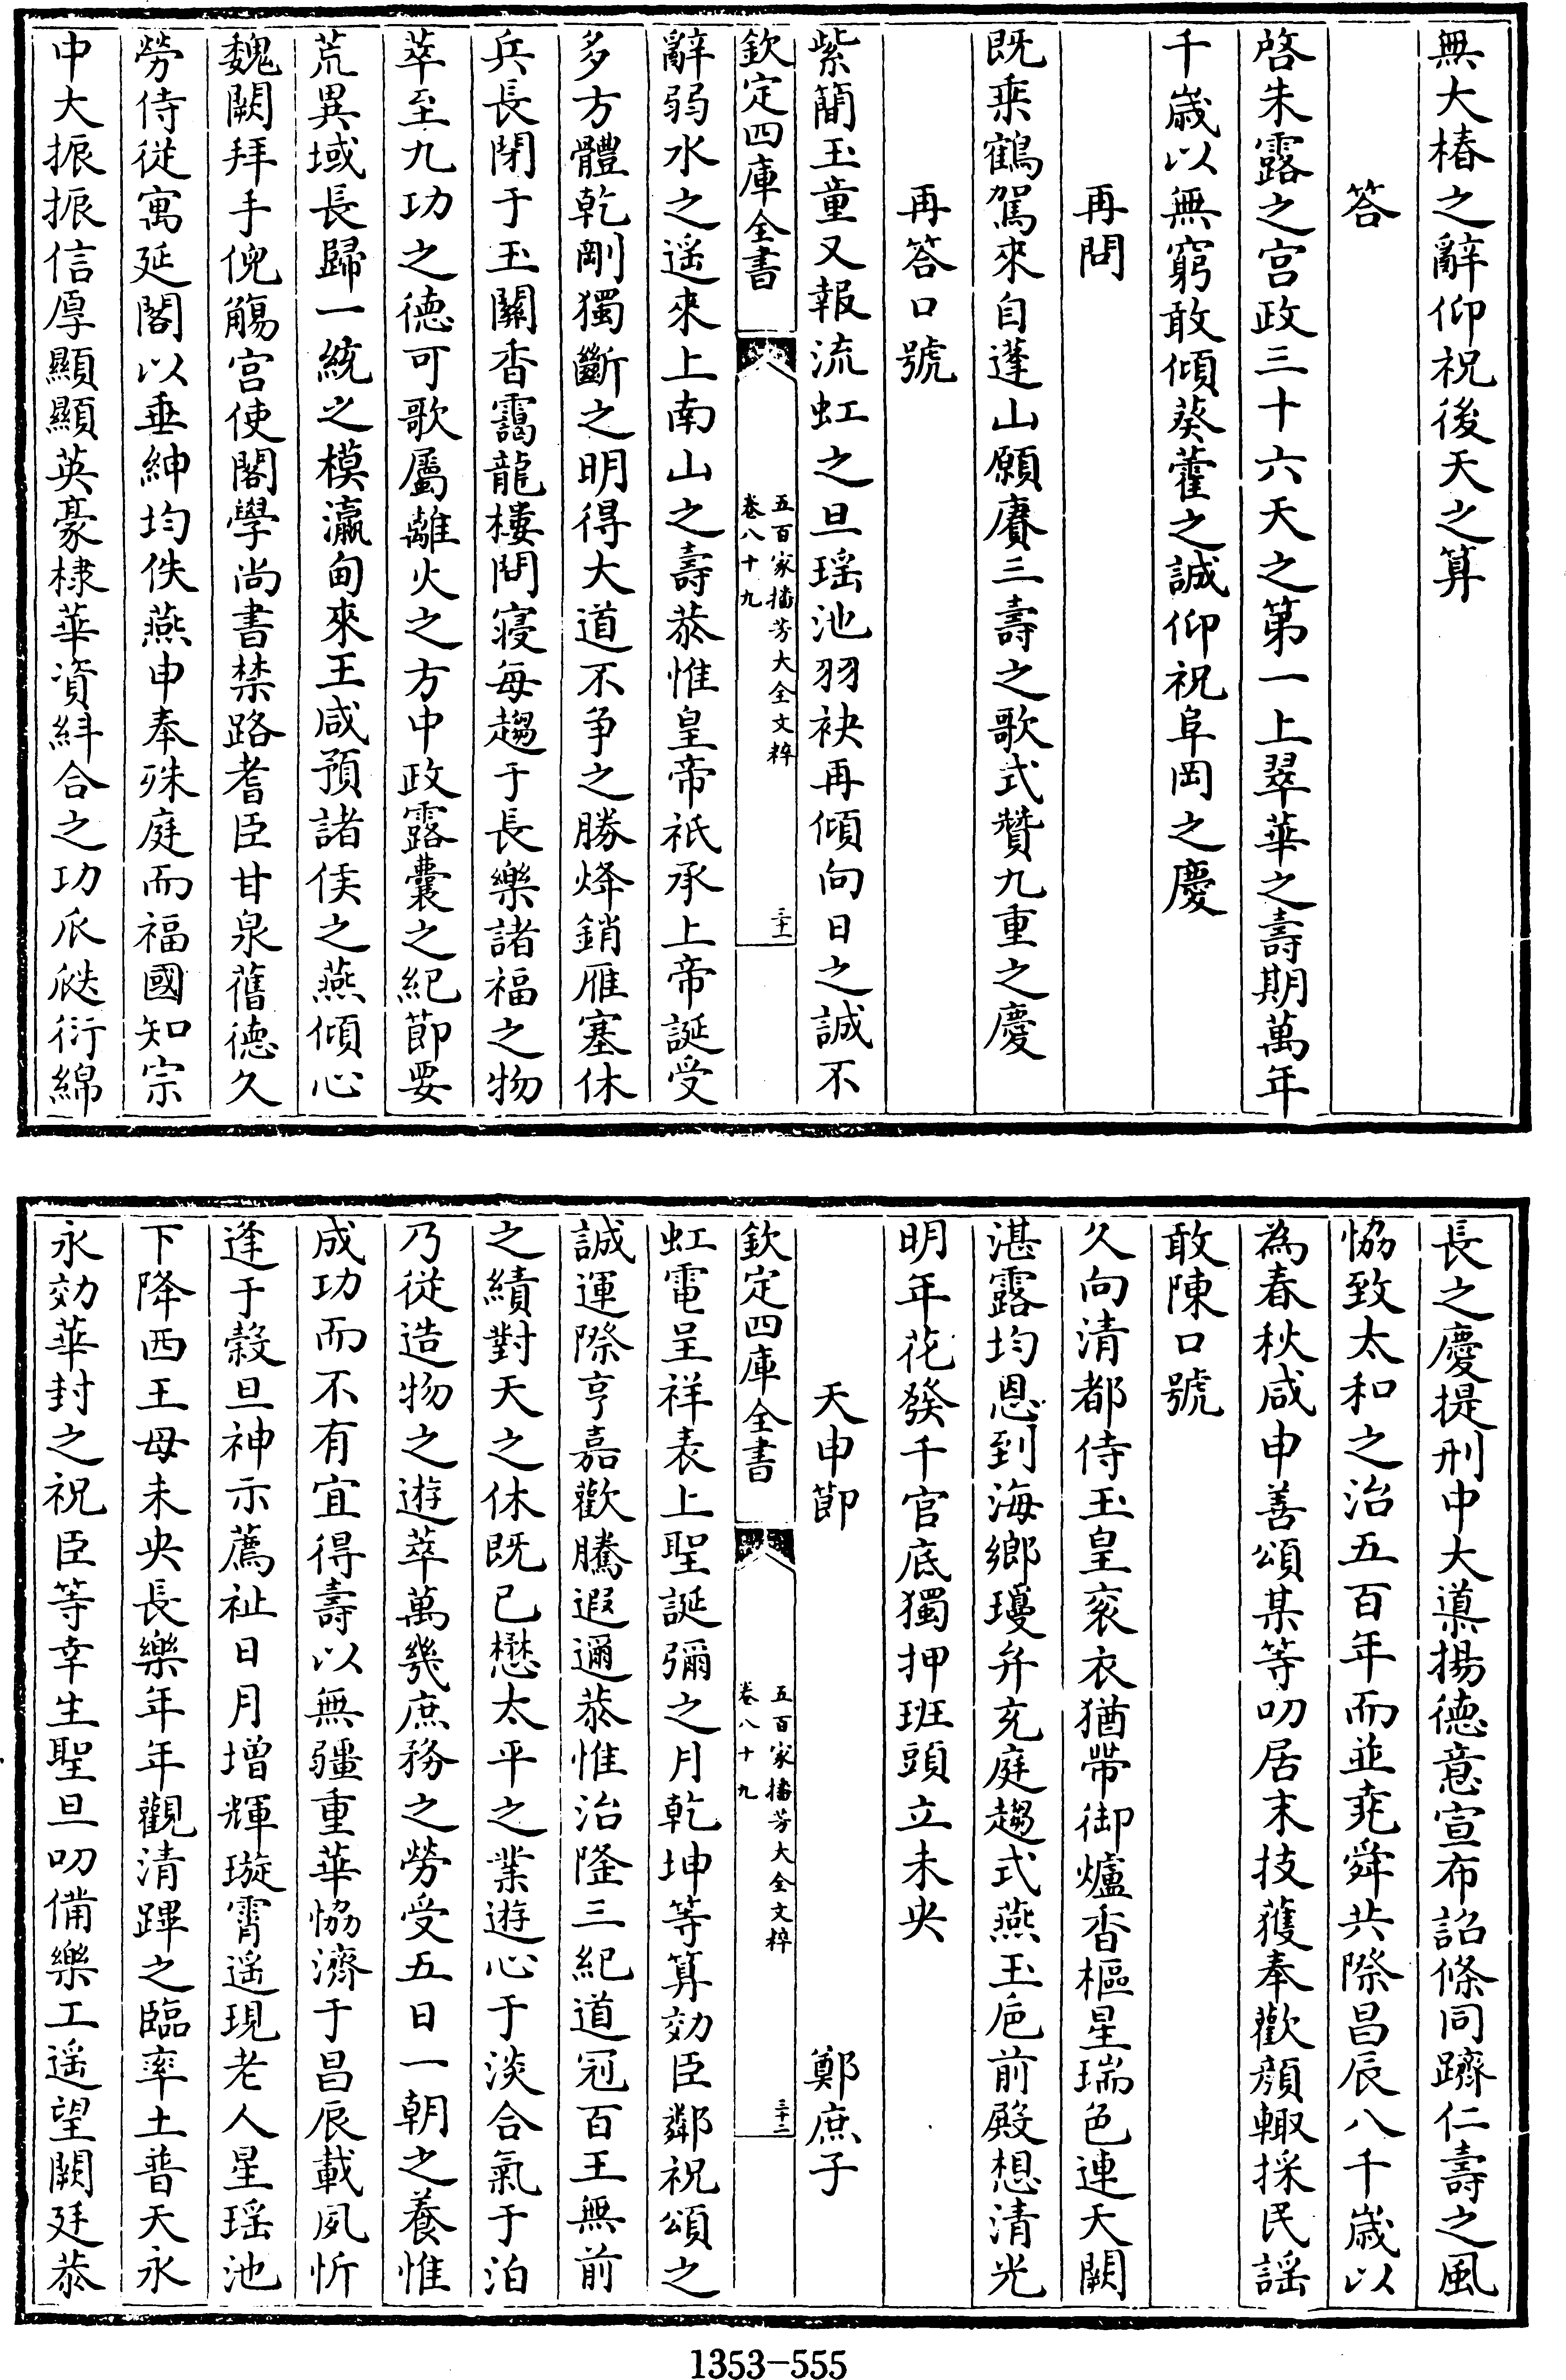 無大椿之辭仰祝後天之算
答
啓朱露之宫政三十六天之第一上翠華之壽期萬年
千歲以無窮敢傾葵藿之誠仰祝阜岡之慶
再問
既乘鶴駕來自蓬山願賡三壽之歌式贊九重之慶
再答口號
紫簡玉童又報流虹之旦瑶池羽袂再傾向日之誠不
欽定四庫全書
五百家播芳大全文粹
卷八十九
三十一
辭弱水之遥來上南山之壽恭惟皇帝祇承上帝誕受
多方體乾剛獨斷之明得大道不争之勝烽銷雁塞休
兵長閉于玉關香靄龍樓問寝每趨于長樂諸福之物
萃至九功之德可歌屬離火之方中政露囊之紀節要
荒異域長歸一統之模瀛甸來王咸預諸侯之燕傾心
魏闕拜手倪觴宫使閣學尚書禁路耆臣甘泉舊德久
勞侍從寓延閣以垂紳均佚燕申奉殊庭而福國知宗
中大振振信厚顯顯英豪棣華資紏合之功瓜瓞衍綿
長之慶提刑中大導揚德意宣布詔條同躋仁壽之風
恊致太和之治五百年而並堯舜共際昌辰八千歲以
為春秋咸申善頌某等叨居末技獲奉歡顔輙採民謡
敢陳口號
久向清都侍玉皇衮衣猶帶御爐香樞星瑞色連天闕
湛露均恩到海鄉瓊弁充庭趨式燕玉巵前殿想清光
明年花發千官底獨押班頭立未央
天申節
鄭庶子
欽定四庫全書
五百家播芳大全文粹
卷八十九
三十二
虹電呈祥表上聖誕彌之月乾坤等算効臣鄰祝頌之
誠運際亨嘉歡騰遐邇恭惟治隆三紀道冠百王無前
之績對天之休既已懋太平之業遊心于淡合氣于泊
乃從造物之遊萃萬幾庶務之勞受五日一朝之養惟
成功而不有宜得壽以無疆重華恊濟于昌辰載夙忻
逢于穀旦神示薦祉日月增輝璇霄遥現老人星瑶池
下降西王母未央長樂年年觀清蹕之臨率土普天永
永効華封之祝臣等幸生聖旦叨備樂工遥望闕廷恭
1353-555